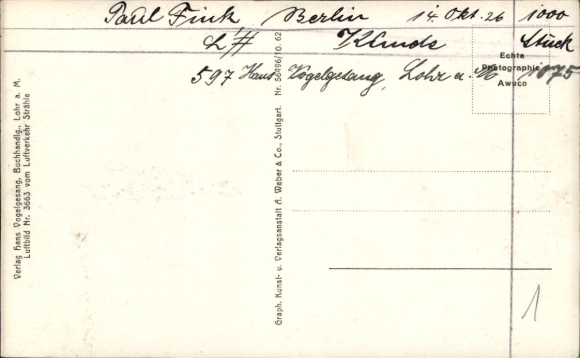 Paul Fink Berlin 14. Okt. 26 1000
L/# Stück
597 Hans Vogelgesang, Lohr a. M. 1075
Echte
Photographie
Awuco
Verlag Hans Vogelgesang, Buchhandlg., Lohr a. M.
Luftbild Nr. 3663 vom Luftverkehr Strähle
Graph. Kunst- u. Verlagsanstalt A. Weber & Co., Stuttgart. Nr. 56496/10. 62
1